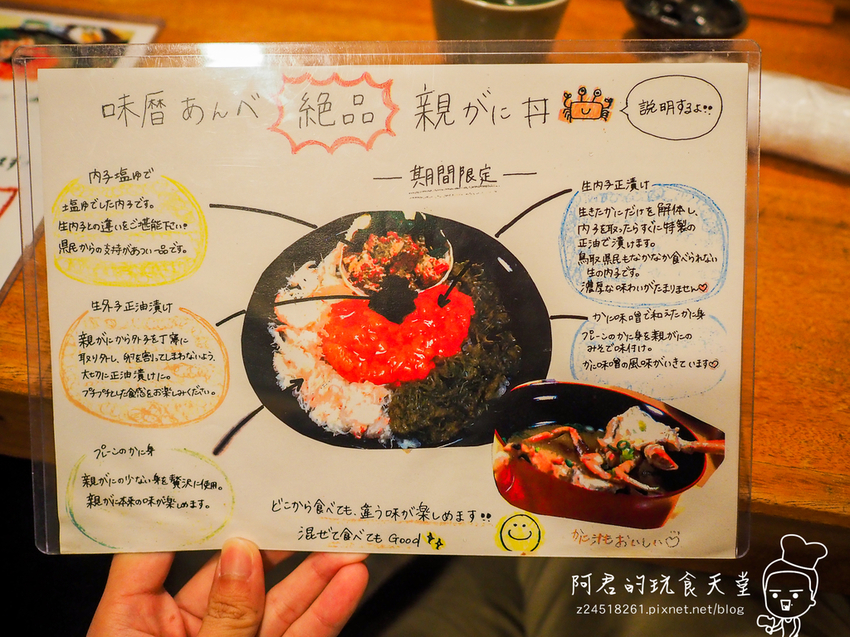 味暦あんべ 絶品 親がに丼
説明するよ!!
期間限定
内子塩ゆで
塩ゆでした内子です。
生内子との違いをご堪能下さい!
県民からの支持があつい一品です。
生外子正油漬け
親がにから外子を丁寧に
取り外し、卵を割ってしまわないよう、
大切に正油漬けに。
プチプチとした食感をお楽しみください。
プレーンのかに身
親がにの少ない身を贅沢に使用。
親がに本来の味が楽しめます。
生内子正漬け
生きたかにだけを解体し、
内子を取ったらすぐに特製の
正油で漬けます。
鳥取県民もなかなか食べられない
生の内子です。
濃厚な味わいがたまりません♡
かに味噌で和えたかに身
プレーンのかに身を親がにの
みそで味付け。
かに味噌の風味がいきています♡
どこから食べても、違う味が楽しめます!!
混ぜて食べても Good
かに汁もおいしい♡
阿君的玩食天堂
z24518261.pixnet.net/blog